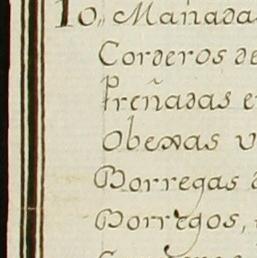 10,, Mañadas
Corderos de
Preñadas e
Obexas v
Borregas
Borregos,